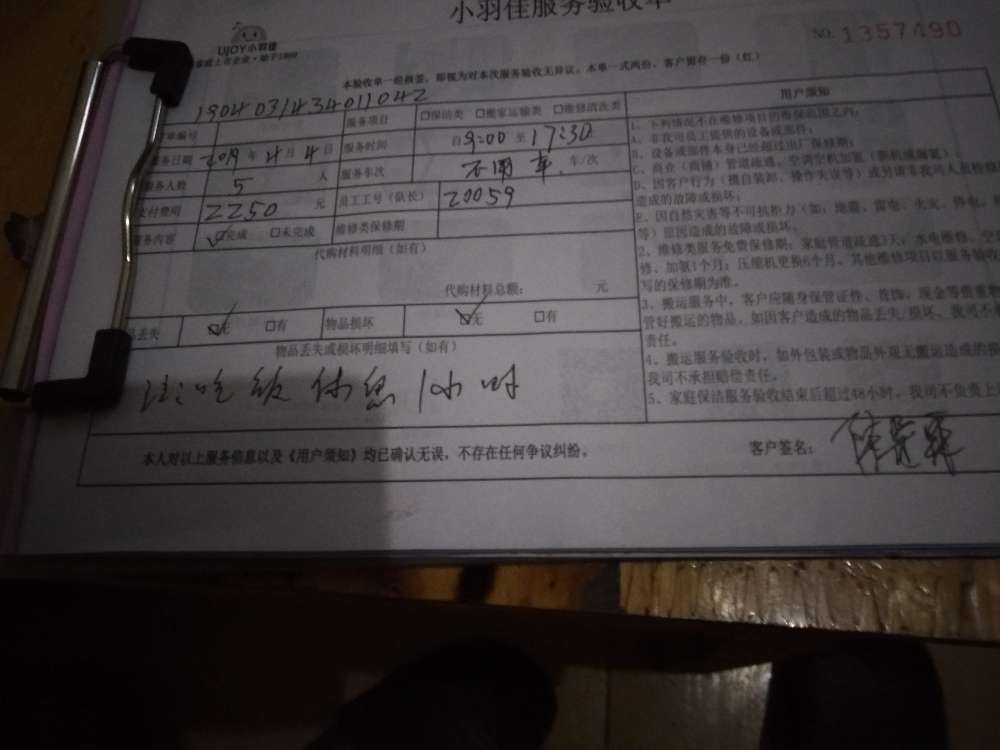 小羽佳服务验收单
UJOY小羽佳
家庭上市企业·始于1999
NO. 1357490
本验收单一经核签，即视为对本次服务验收无异议。本单一式两份，客户留存一份（红）
单编号 1904031434011042 服务项目 □保洁类 □搬家运输类 □维修清洗类
服务日期 2019年4月4日 服务时间 自9:00至17:30
服务人数 5 人 服务车次 不用车 车/次
支付费用 2250 元 员工工号（队长） 20059
服务内容 ☑完成 □未完成 维修类保修期
代购材料明细（如有）
代购材料总额： 元
品丢失 ☑无 □有 物品损坏 ☑无 □有
物品丢失或损坏明细填写（如有）
注：吃饭休息1小时
本人对以上服务信息以及《用户须知》均已确认无误，不存在任何争议纠纷。
客户签名：
用户须知
1、下列情况不在维修项目的维保范围之内：
A、非我司员工提供的设备或部件；
B、设备或部件本身已经超过出厂保修期；
C、商企（商铺）管道疏通，空调空机加氨（新机或漏氨）；
D、因客户行为（擅自装卸、操作失误等）或另请非我司人员检修
造成的故障或损坏；
E、因自然灾害等不可抗拒力（如：地震、雷电、火灾、停电、
等）原因造成的故障或损坏。
2、维修类服务免费保修期：家庭管道疏通7天；水电维修、空
修、加氨1个月；压缩机更换6个月。其他维修项目以服务验收
写的保修期为准。
3、搬运服务中，客户应随身保管证件、首饰、现金等贵重
管好搬运的物品。如因客户造成的物品丢失/损坏，我司不
责任。
4、搬运服务验收时，如外包装或物品外观无搬运造成的损
我司不承担赔偿责任。
5、家庭保洁服务验收结束后超过48小时，我司不负责上